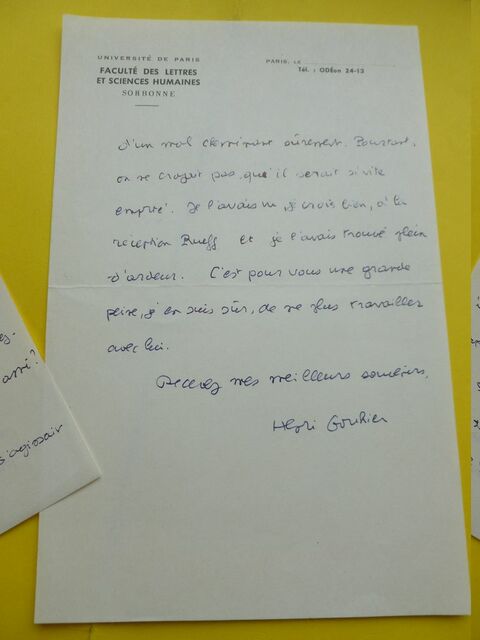 UNIVERSITÉ DE PARIS
FACULTÉ DES LETTRES
ET SCIENCES HUMAINES
SORBONNE
PARIS, LE
Tél. : ODÉon 24-13
d'un mal cheminant sûrement. Pourtant,
on ne croyait pas, qu'il serait si vite
emporté. Je l'avais vu, je crois bien, à la
réception Rueff et je l'avais trouvé plein
d'ardeur. C'est pour vous une grande
peine, j'en suis sûr, de ne plus travailler
avec lui.
Recevez mes meilleurs souvenirs.
Henri Gouhier
ami?
s'agissait